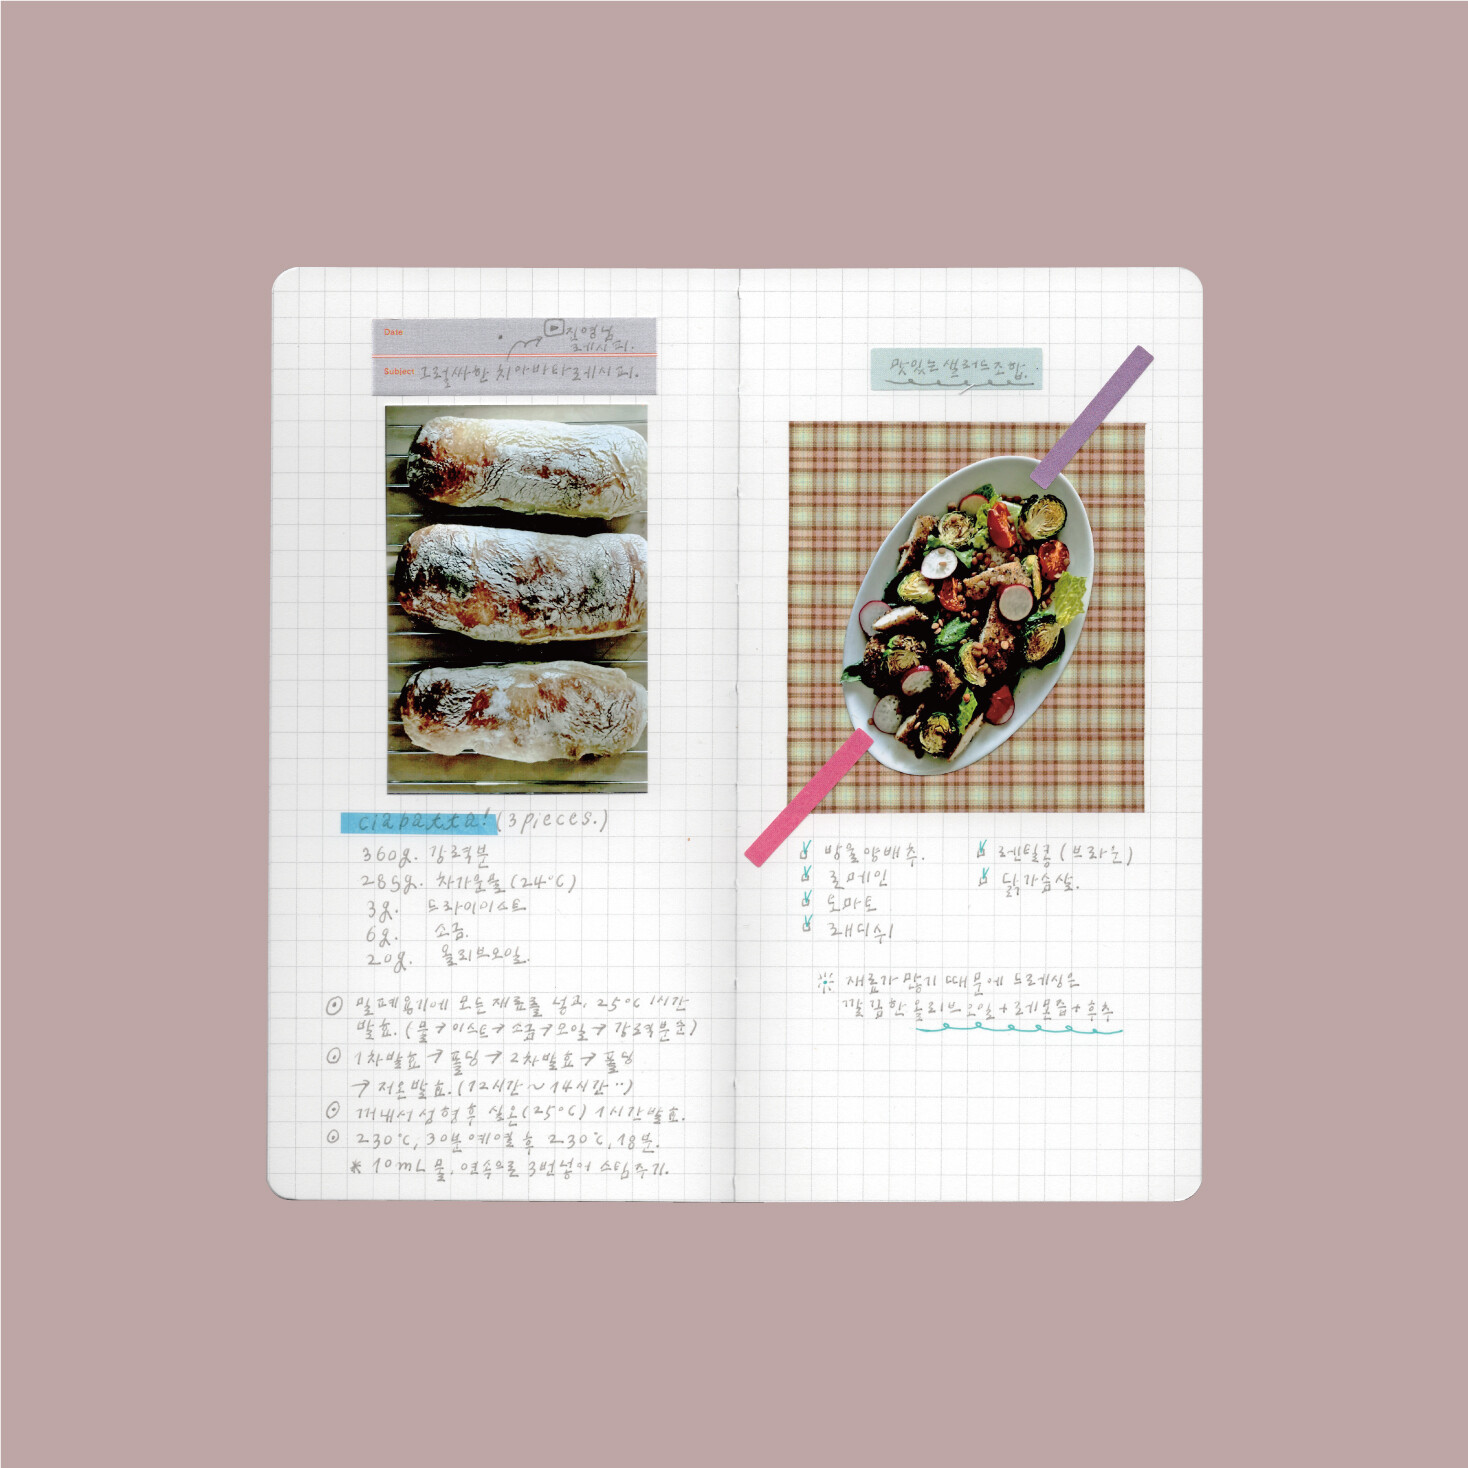 Date
▶ 진영님
레시피.
Subject 그럴싸한 치아바타 레시피.
ciabatta! (3 pieces.)
360g. 강력분
285g. 차가운물 (24°C)
3g. 드라이이스트
6g. 소금.
20g. 올리브오일.
밀폐용기에 모든 재료를 넣고, 25°C 1시간
발효. (물→이스트→소금→오일→강력분 순)
1차발효 → 폴딩 → 2차발효 → 폴딩
→ 저온발효. (12시간 ~ 14시간··)
꺼내서 성형 후 실온(25°C) 1시간 발효.
230°C, 30분 예열 후 230°C, 18분.
* 10mL 물, 연속으로 3번 넣어 스팀주기.
맛있는 샐러드 조합.
방울양배추.
로메인
토마토
래디쉬
렌틸콩 (브라운)
닭가슴살.
재료가 많기 때문에 드레싱은
깔끔한 올리브오일+레몬즙+후추